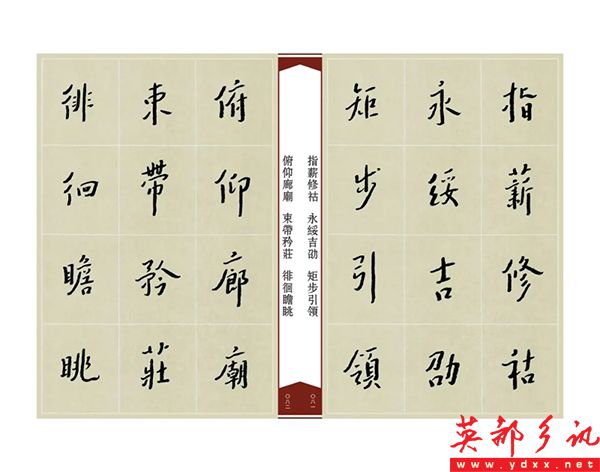 指薪修祜
永綏吉劭
矩步引領
指薪修祜 永綏吉劭 矩步引領
俯仰廊廟 束帶矜莊 徘徊瞻眺
〇八一
〇八二
俯仰廊廟
束帶矜莊
徘徊瞻眺
英都乡讯
www.ydxx.net